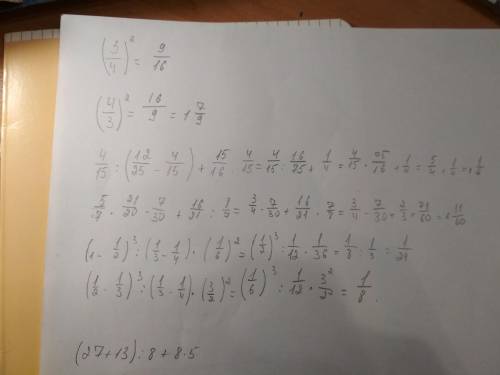 (3/4)² = 9/16
(4/3)² = 16/9 = 1 7/9
4/15 : (12/25 - 4/15) + 15/16 · 4/15 = 4/15 · 16/25 + 1/4 = 4/15 · 25/16 + 1/4 =
21/20 - 7/30 + 16/21 : = 3/4 - 7/30 + 16/21 · = 3/4 - 7/30 + 2/3 = 71/60 = 1 11/60
(1 - 1/2)³ : (1/3 - 1/4) · (1/6)² = (1/2)³ : 1/12 · 1/36 = 1/8 · 1/3 =
(1/2 - 1/3)³ : (1/3 - 1/4) · (3/2)² = (1/6)³ : 1/12 · = 1/8 .
(27+13) : 8 + 8 · 5